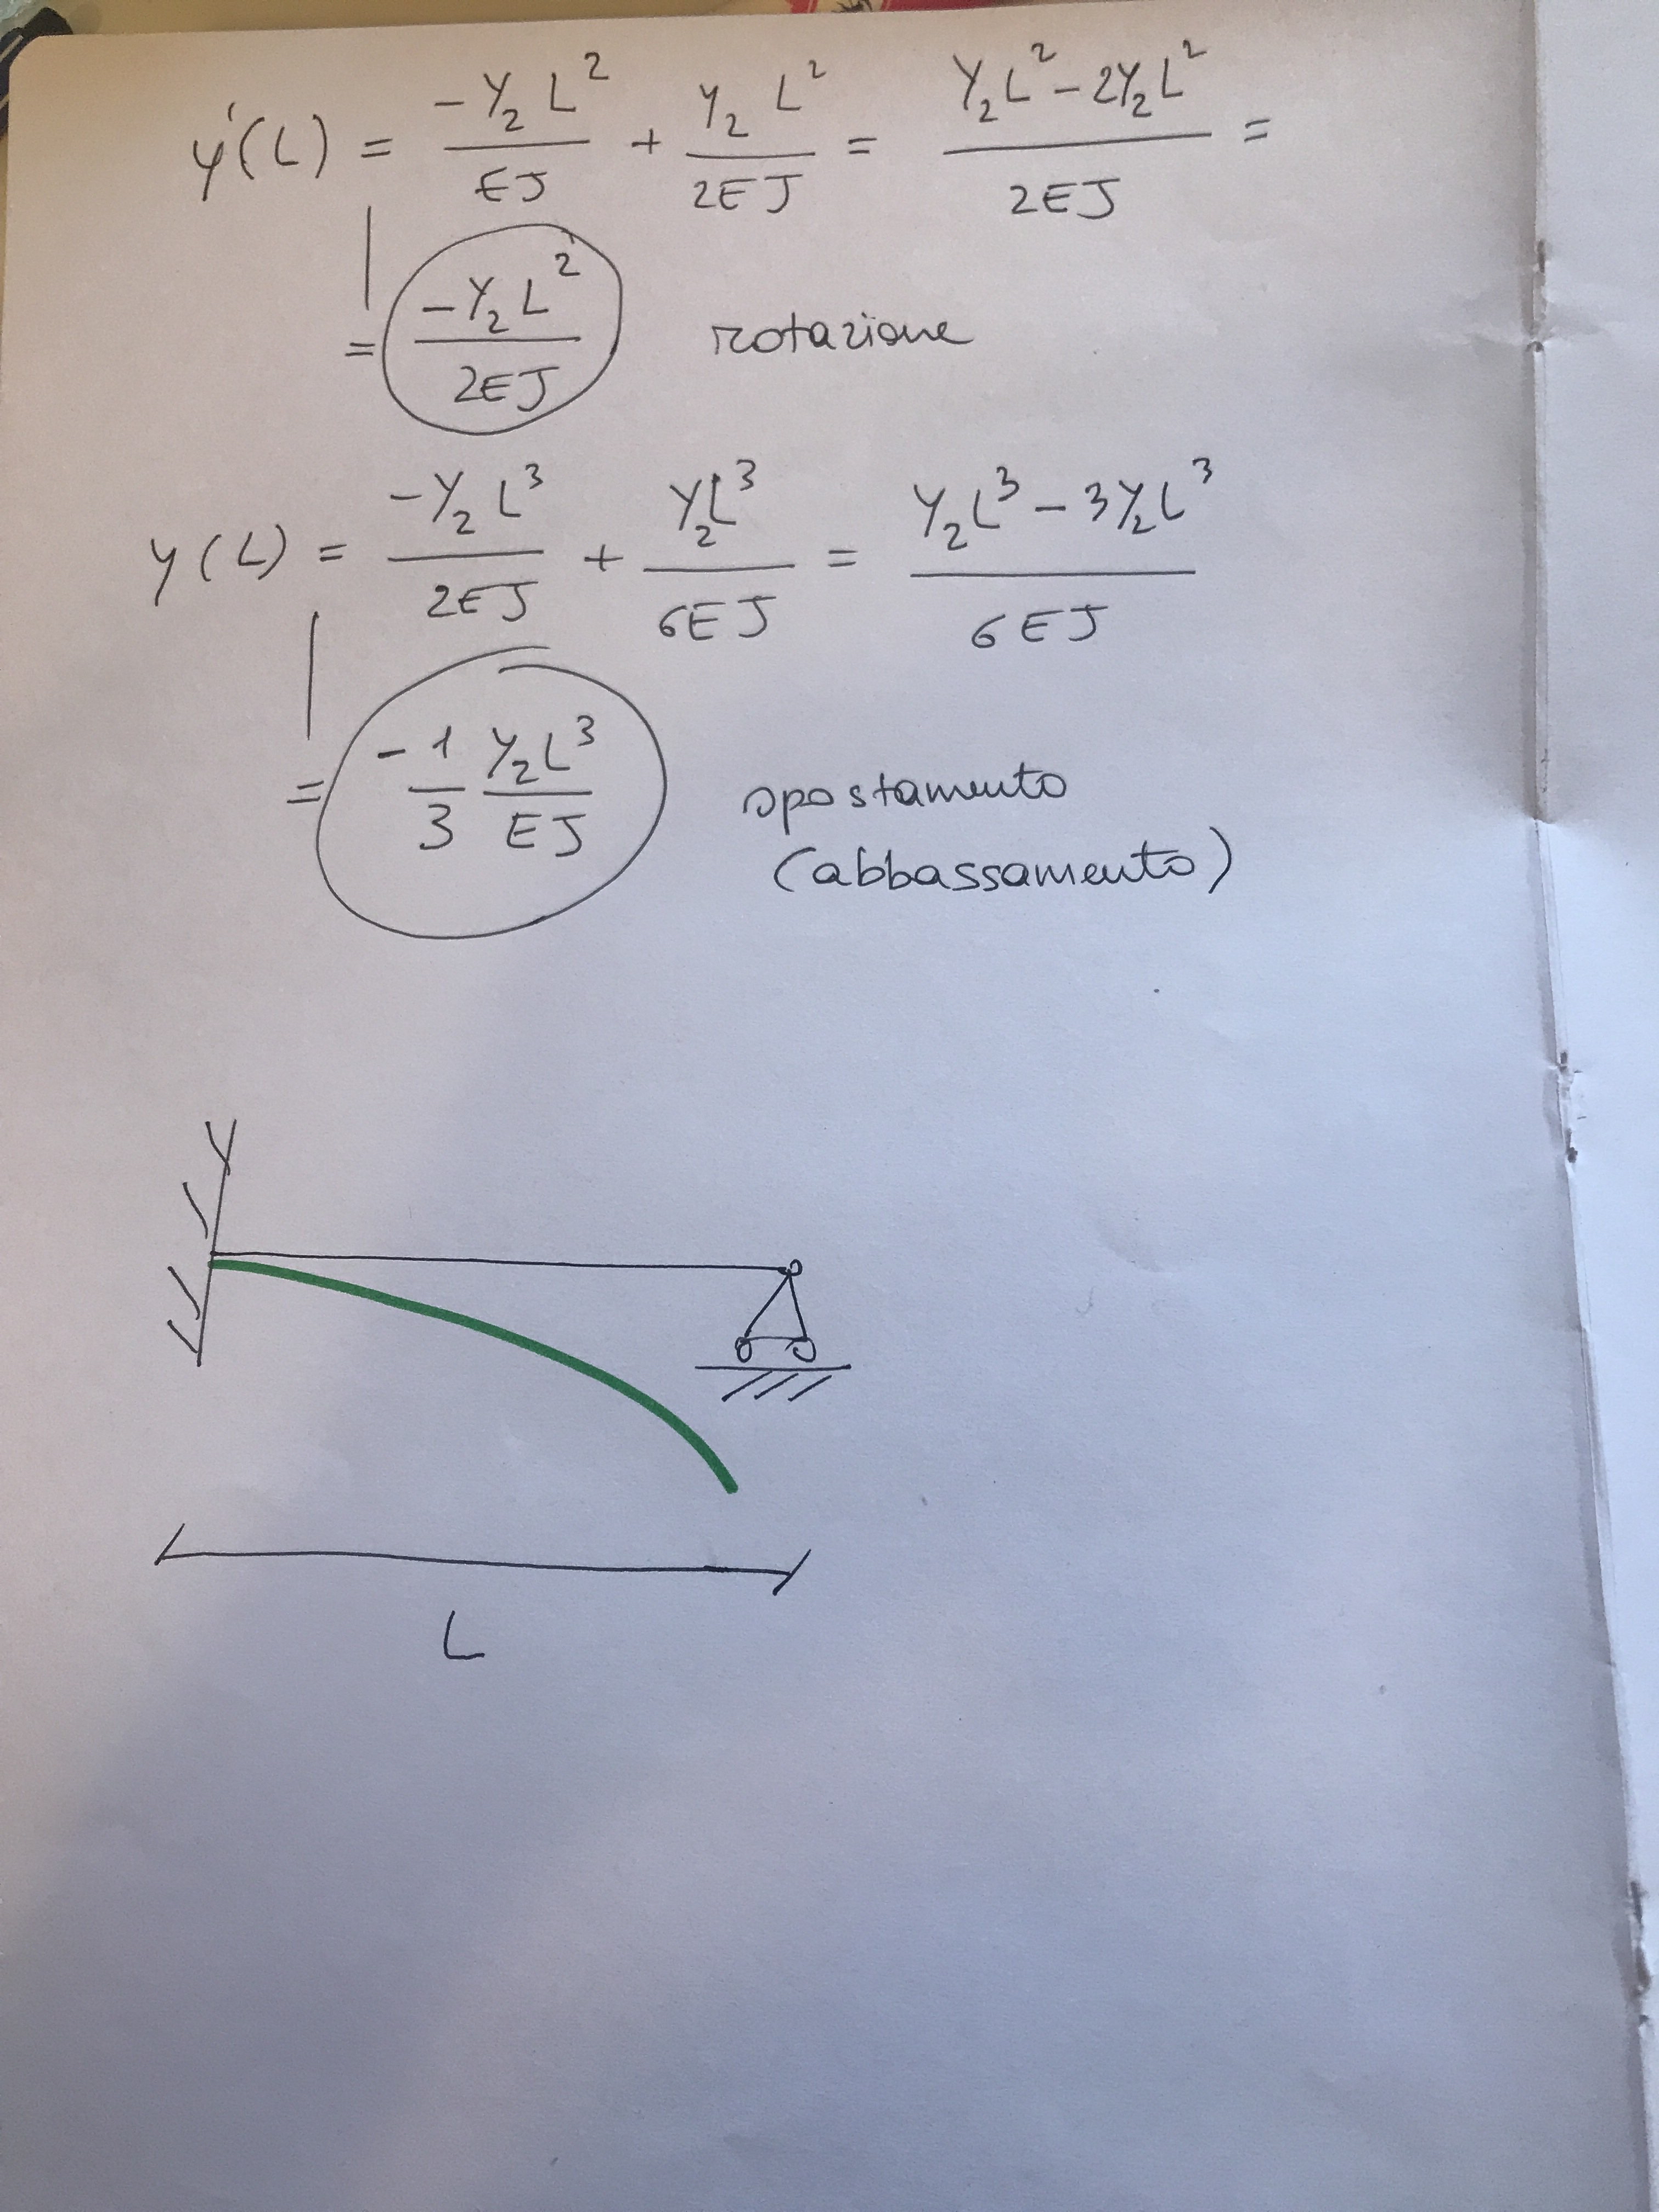 y'(L) = -Y₂L²/EJ + Y₂L²/2EJ = Y₂L²-2Y₂L²/2EJ =
= -Y₂L²/2EJ rotazione
y(L) = -Y₂L³/2EJ + Y₂L³/6EJ = Y₂L³-3Y₂L³/6EJ
= -1/3 Y₂L³/EJ spostamento
(abbassamento)
L